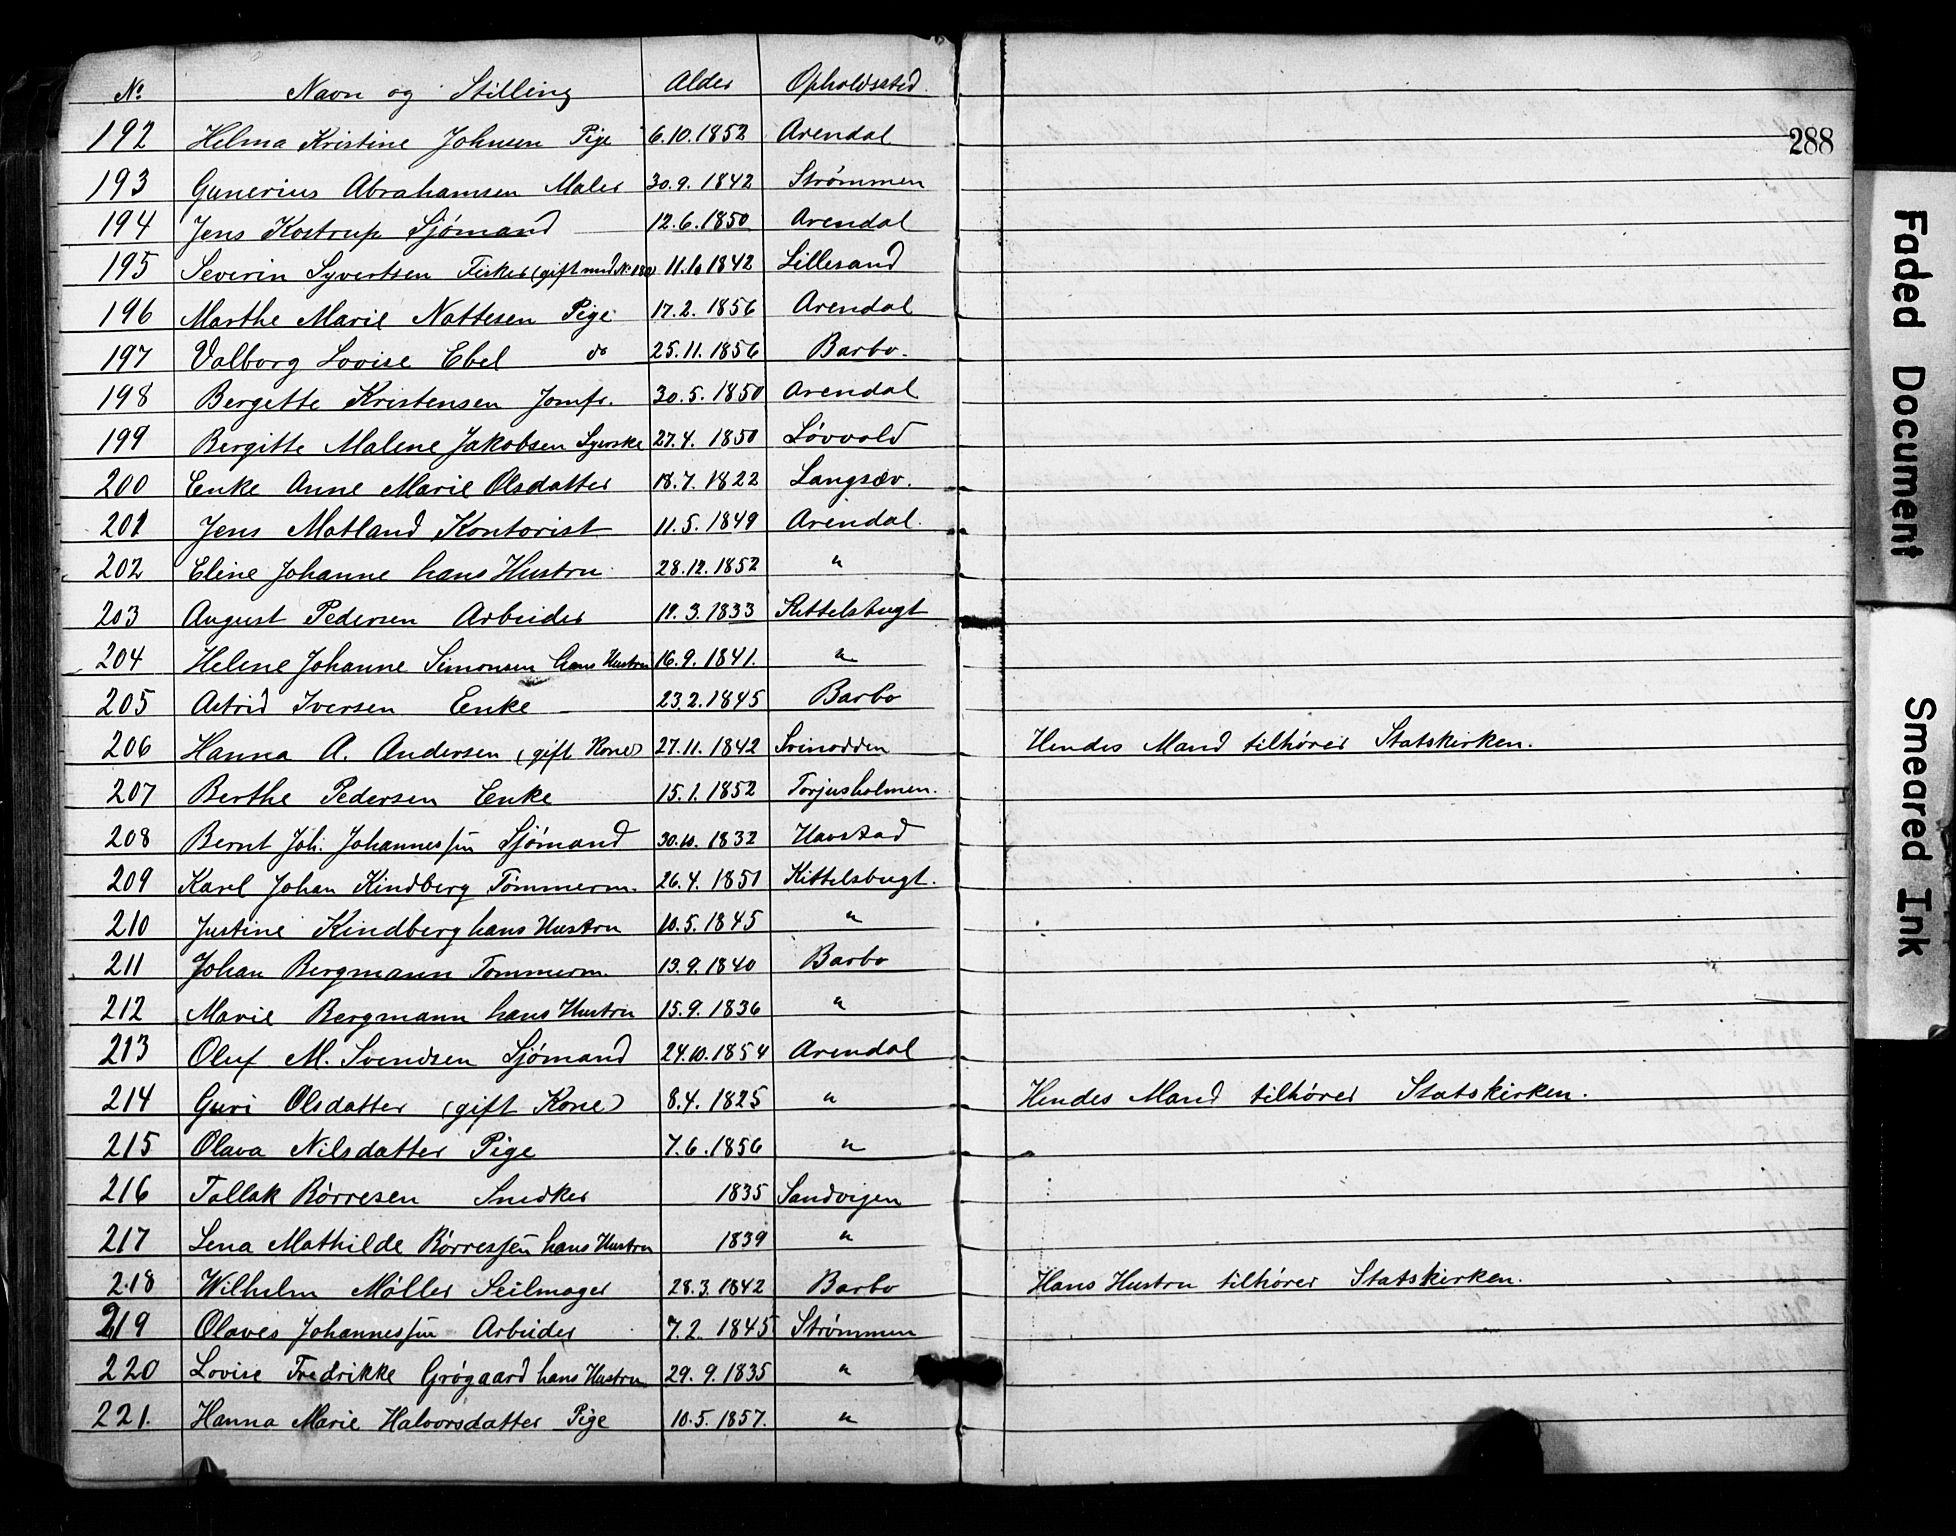 No Navn og Stilling Alder Opholdssted.
288
192 Helma Kristine Johnsen Pige 6.10.1852 Arendal
193 Gunerius Abrahamsen Maler 30.9.1842 Strømmen
194 Jens Kostrup Sjömand 12.6.1850 Arendal
195 Severin Syvertsen Fisker (gift med No 11.10.1842 Lillesand
196 Marthe Marie Nottesen Pige 17.2.1856 Arendal
197 Valborg Lovise Ebel do 25.11.1856 Barbo.
198 Bergette Kristensen Jomfr. 30.5.1850 Arendal
199 Bergitte Malene Jakobsen Syerske 27.4.1850 Løvvold
200 Enke Anne Marie Olsdatter 18.7.1822 Langsæv.
201 Jens Matland Kontorist 11.5.1849 Arendal.
202 Eline Johanne hans Hustru 28.12.1852 "
203 August Pedersen Arbeider 3.1833 Kittelsbugt
204 Helene Johanne Simonsen hans Hustru 16.9.1841. "
205 Astrid Iversen Enke 23.2.1845 Barbo
206 Hanna A. Andersen (gift Kone) 27.11.1842 Svinodden Hendes Mand tilhører Statskirken.
207 Berthe Pedersen Enke 15.1.1852 Torjusholmen.
208 Bernt Joh. Johannessen Sjömand 30.10.1832 Havstad
209 Karel Johan Kindberg Tømmerm. 26.4.1851 Kittelsbugt.
210 Justine Kindberg hans Hustru 10.5.1845 "
211 Johan Bergmann Tømmerm. 13.9.1840 Barbo
212 Marie Bergmann hans Hustru 15.9.1836 "
213 Oluf M. Svendsen Sjömand 24.10.1854 Arendal
214 Guri Olsdatter (gift Kone) 8.4.1825 " Hendes Mand tilhører Statskirken.
215 Olava Nilsdatter Pige 7.6.1856 "
216 Tallak Børresen Snedker 1835 Sandvigen
217 Lena Mathilde Børressen hans Hustru 1839 "
218 Wilhelm Møller Seilmager 28.3.1842 Barbo Hans Hustru tilhører Statskirken.
219 Olaves Johannessen Arbeider 7.2.1845 Strømmen
220 Lovise Fredrikke Grøgaard hans Hustru 29.9.1835 "
221. Hanna Marie Halvorsdatter Pige 10.5.1857. "
Faded Document
Smeared Ink